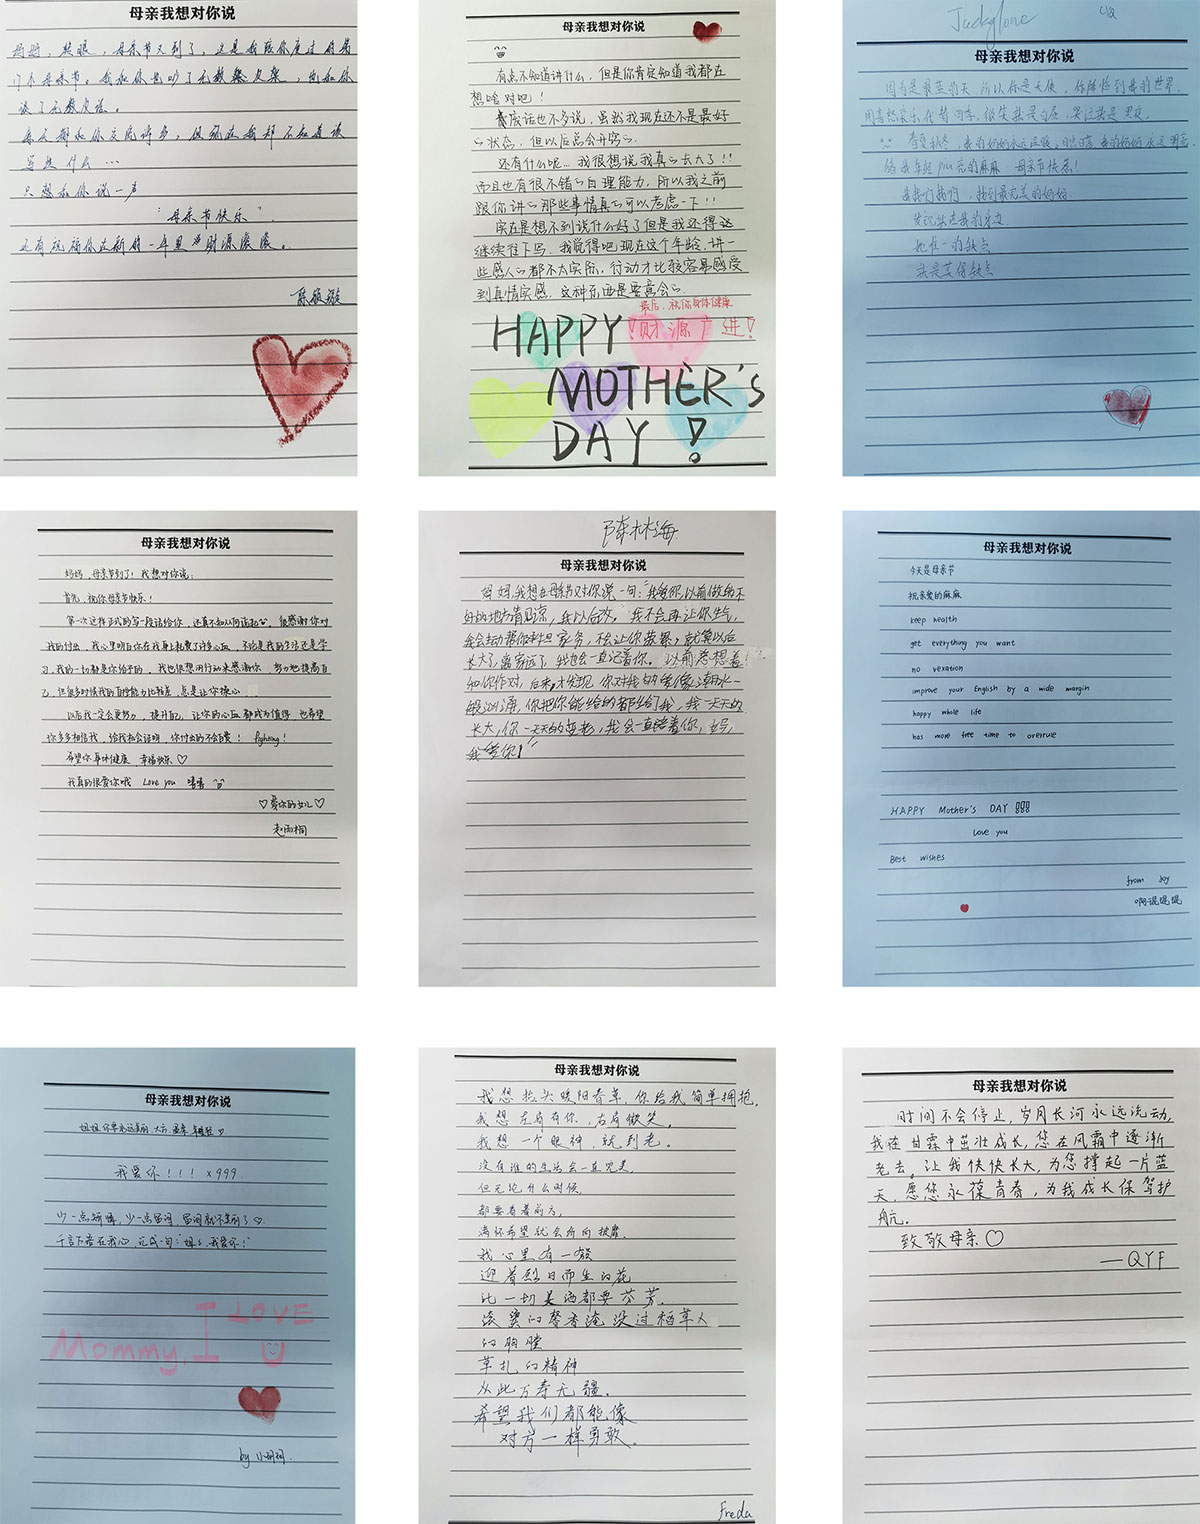 母亲我想对你说
妈妈，转眼，母亲节又到了，这是我陪你度过的第
个母亲节。我和你也吵了无数架，也和你
谈了无数次话。
每天都和你交流许多，但现在我却不知道该
写些什么…
只想和你说一声
“母亲节快乐”.
还有祝福你在新的一年里财源滚滚。
母亲我想对你说
有点不知道讲什么，但是你肯定知道我都在
想啥对吧！
废话也不多说，虽然我现在还不是最好
の状态，但以后总会开窍の
还有什么呢…我很想说我真の长大了！！
而且也有很不错の自理能力，所以我之前
跟你讲の那些事情真の可以考虑一下！！
实在是想不到说什么好了但是我还得达
继续往下写，我觉得吧现在这个年龄，讲一
些感人の都不太实际，行动才比较容易感受
到真情实感，这种东西是要意会の
最后，祝你身体健康
财源广进！
HAPPY
MOTHER's
DAY！
母亲我想对你说
因为是最蓝的天，所以你是天使，你降临到我的世界，
用喜怒哀乐代替四季，微笑就是白昼，哭泣就是黑夜。
母亲节快乐！
找到最完美的妈妈
母亲我想对你说
妈妈，母亲节到了！我想对你说：
首先，祝你母亲节快乐！
第一次这样正式的写一段话给你，还真不知从何讲起，很感谢你对
我的付出，我心里明白你在我身上耗费了许多心血，不论是我的生活还是学
习，我的一切都是你给予的，我也很想用行动来感谢你，努力地提高自
己，但很多时候我的自控能力比较差，总是让你操心
以后我一定会更努力，提升自己，让你的心血都成为值得，也希望
你多多相信我，给我机会证明，你付出的不会白费！ fighting！
希望你身体健康，幸福快乐♡
我真的很爱你哦 Love you 嘻嘻
♡爱你的女儿♡
赵雨桐
陈林海
母亲我想对你说
妈妈，我想在母亲节对你说一句：“我爱你，以前做的不
好的地方请见谅，我以后改，我不会再让你生气，
我会主动帮你担家务，不会让你劳累，就算以后
长大了，离家远了，我也会一直记着你。以前总想着
和你作对，后来才发现，你对我的爱像潮水一
般汹涌，你把你能给的都给了我，我一天天的
长大，你一天天的变老，我会一直陪着你，妈，
我爱你！”
母亲我想对你说
今天是母亲节
祝亲爱的麻麻
keep health
get everything you want
no vexation
improve your English by a wide margin
happy whole life
has more free time to overrule
HAPPY Mother's DAY !!!
Love you
Best wishes
from Joy
啊混混混
母亲我想对你说
我爱你！！！×999.
少一点烦恼，少一点皱眉，皱眉就不美丽了♡.
千言万语在我心，汇成一句：“妈，我爱你！”
Mommy, I LOVE
U
by 小玥玥
母亲我想对你说
我想抬头暖阳春草，你给我简单拥抱，
我想左肩有你，右肩微笑。
我想一个眼神，就到老。
没有谁的生活会一直完美，
但无论什么时候，
都要看着前方，
满怀希望就会所向披靡。
我心里有一簇
迎着烈日而生の花
比一切美酒都要芬芳，
滚烫の馨香淹没过稻草人
の胸膛
草扎の精神
从此万寿无疆，
希望我们都能像
对方一样勇敢。
Freda
母亲我想对你说
时间不会停止，岁月长河永远流动，
我在甘霖中茁壮成长，您在风霜中逐渐
老去。让我快快长大，为您撑起一片蓝
天，愿您永葆青春，为我成长保驾护
航。
致敬母亲♡
——QYF